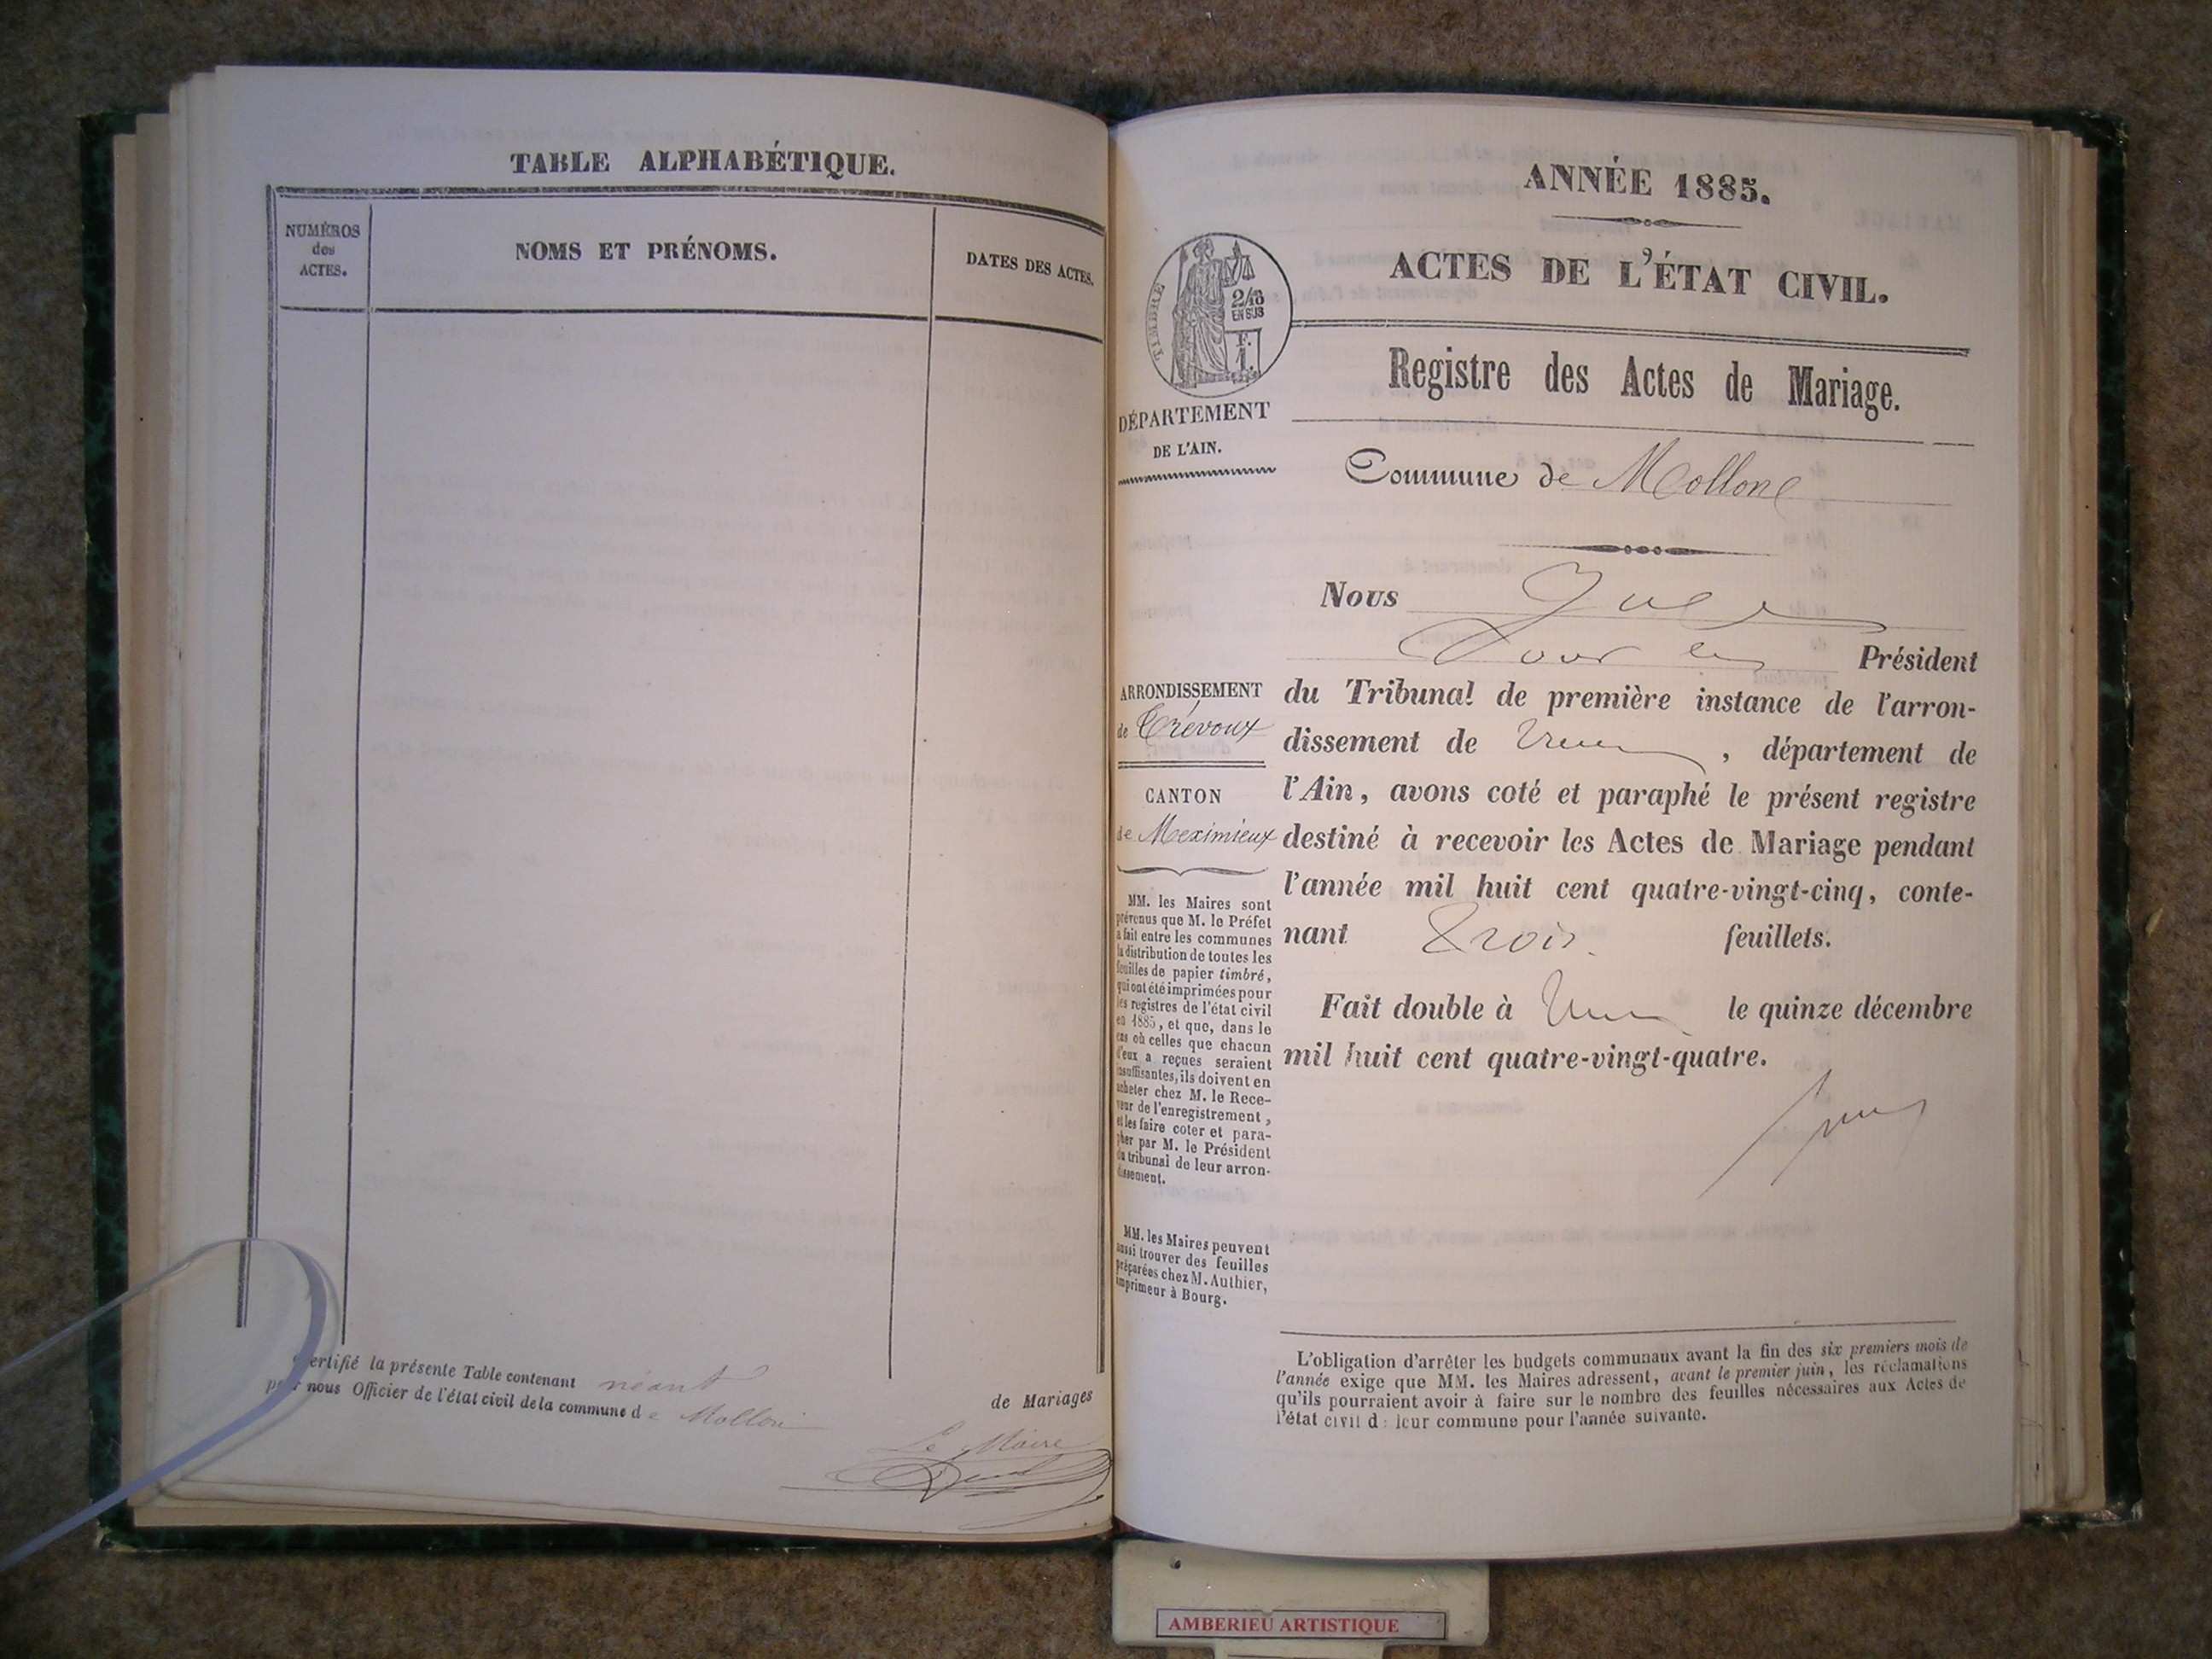 TABLE ALPHABÉTIQUE.
NUMÉROS
des
ACTES.
NOMS ET PRÉNOMS.
DATES DES ACTES.
Certifié la présente Table contenant néant de Mariages
par nous Officier de l'état civil de la commune de Mollon
Le Maire
ANNÉE 1885.
ACTES DE L'ÉTAT CIVIL.
TIMBRE
2/10
EN SUS
F.
1.
Registre des Actes de Mariage.
DÉPARTEMENT
DE L'AIN.
Commune de Mollon
ARRONDISSEMENT
de Trévoux
CANTON
de Meximieux
MM. les Maires sont
prévenus que M. le Préfet
a fait entre les communes
la distribution de toutes les
feuilles de papier timbré,
qui ont été imprimées pour
les registres de l'état civil
en 1885, et que, dans le
cas où celles que chacun
d'eux a reçues seraient
insuffisantes, ils doivent en
acheter chez M. le Rece-
veur de l'enregistrement,
et les faire coter et para-
pher par M. le Président
du tribunal de leur arron-
dissement.
MM. les Maires peuvent
aussi trouver des feuilles
préparées chez M. Authier,
imprimeur à Bourg.
Nous
Président
du Tribunal de première instance de l'arron-
dissement de , département de
l'Ain, avons coté et paraphé le présent registre
destiné à recevoir les Actes de Mariage pendant
l'année mil huit cent quatre-vingt-cinq, conte-
nant Trois feuillets.
Fait double à le quinze décembre
mil huit cent quatre-vingt-quatre.
L'obligation d'arrêter les budgets communaux avant la fin des six premiers mois de
l'année exige que MM. les Maires adressent, avant le premier juin, les réclamations
qu'ils pourraient avoir à faire sur le nombre des feuilles nécessaires aux Actes de
l'état civil de leur commune pour l'année suivante.
AMBERIEU ARTISTIQUE